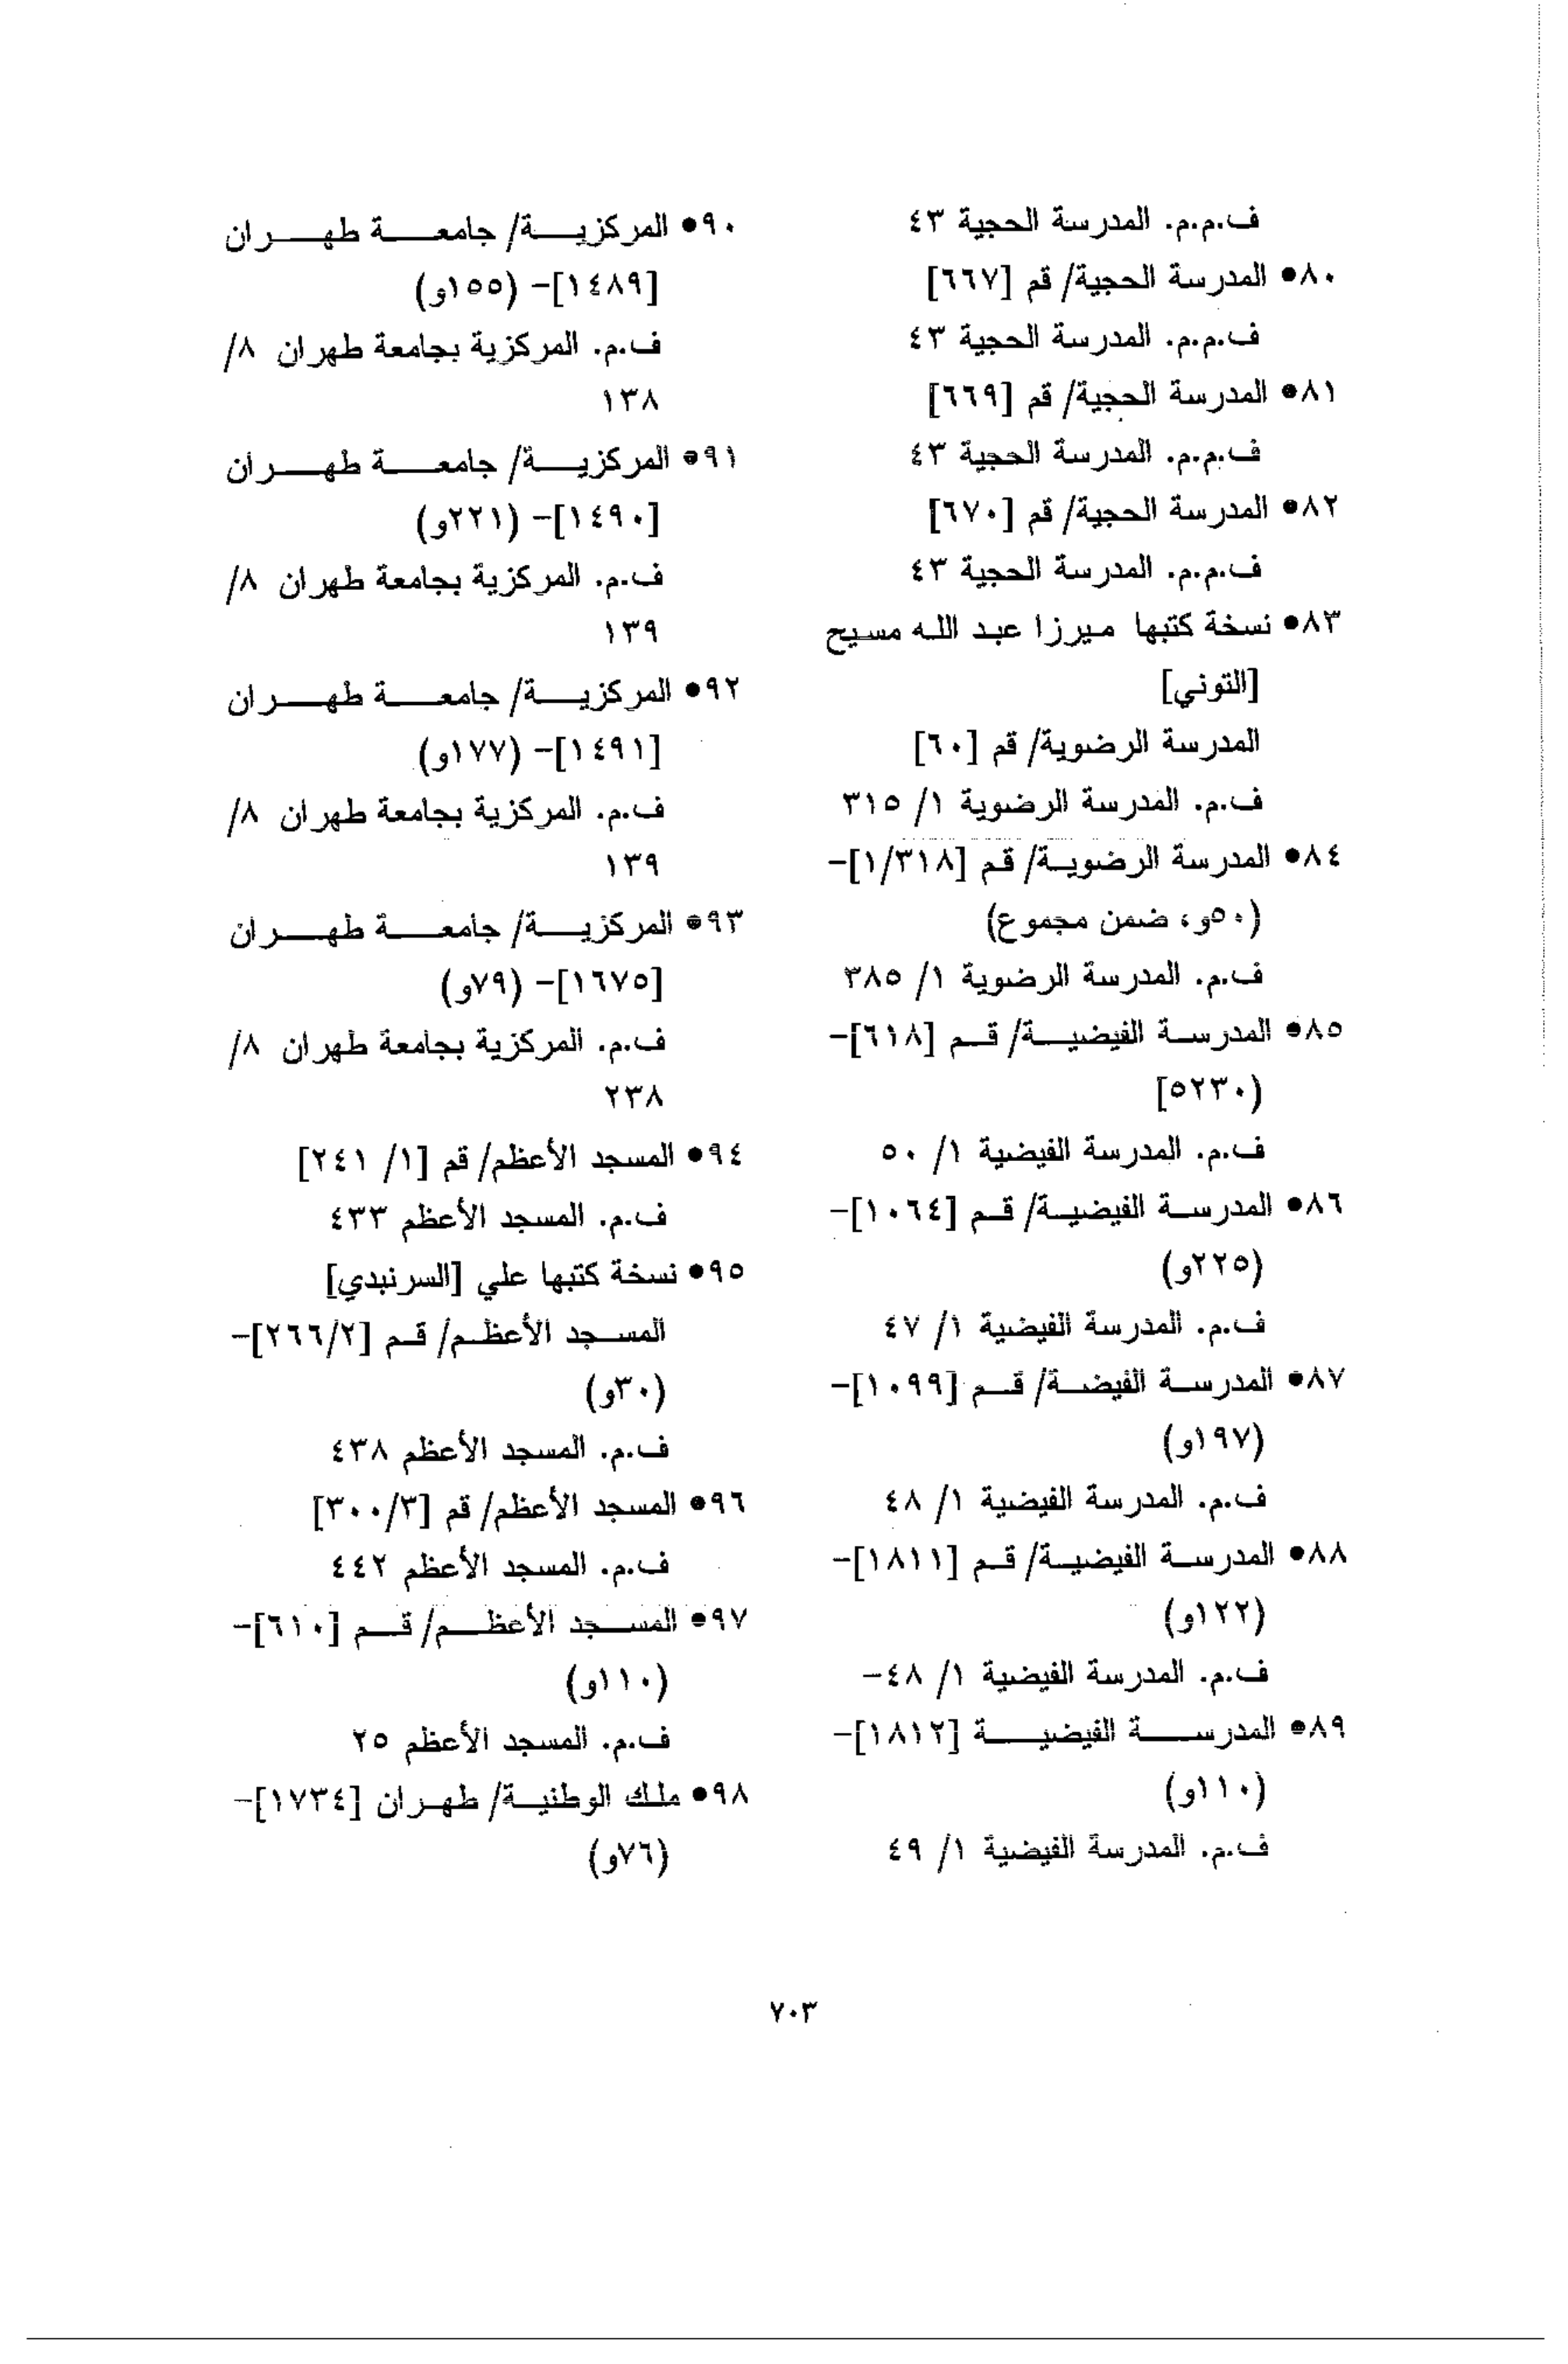 ف.م.م. المدرسة الحجية ٤٣
٨٠• المدرسة الحجية/ قم [٦٦٧]
ف.م.م. المدرسة الحجية ٤٣
٨١• المدرسة الحجية/ قم [٦٦٩]
ف.م.م. المدرسة الحجية ٤٣
٨٢• المدرسة الحجية/ قم [٦٧٠]
ف.م.م. المدرسة الحجية ٤٣
٨٣• نسخة كتبها ميرزا عبد الله مسيح
[التوني]
المدرسة الرضوية/ قم [٦٠]
ف.م. المدرسة الرضوية ١/ ٣١٥
٨٤• المدرسة الرضويـة/ قـم [١/٣١٨]-
(٥٠و، ضمن مجموع)
ف.م. المدرسة الرضوية ١/ ٣٨٥
٨٥• المدرسـة الفيضيـة/ قـم [٦١٨]-
(٥٢٣٠]
ف.م. المدرسة الفيضية ١/ ٥٠
٨٦• المدرسـة الفيضيـة/ قـم [١٠٦٤]-
(٢٢٥و)
ف.م. المدرسة الفيضية ١/ ٤٧
٨٧• المدرسـة الفيضـة/ قـم [١٠٩٩]-
(١٩٧و)
ف.م. المدرسة الفيضية ١/ ٤٨
٨٨• المدرسـة الفيضيـة/ قـم [١٨١١]-
(١٢٢و)
ف.م. المدرسة الفيضية ١/ ٤٨-
٨٩• المدرســـة الفيضيـــة [١٨١٢]-
(١١٠و)
ف.م. المدرسة الفيضية ١/ ٤٩
٩٠• المركزيـــة/ جامعـــة طهـــران
[١٤٨٩]- (١٥٥و)
ف.م. المركزية بجامعة طهران ٨/
١٣٨
٩١• المركزيـــة/ جامعـــة طهـــران
[١٤٩٠]- (٢٢١و)
ف.م. المركزية بجامعة طهران ٨/
١٣٩
٩٢• المركزيـــة/ جامعـــة طهـــران
[١٤٩١]- (١٧٧و)
ف.م. المركزية بجامعة طهران ٨/
١٣٩
٩٣• المركزيـــة/ جامعـــة طهـــران
[١٦٧٥]- (٧٩و)
ف.م. المركزية بجامعة طهران ٨/
٢٣٨
٩٤• المسجد الأعظم/ قم [١/ ٢٤١]
ف.م. المسجد الأعظم ٤٣٣
٩٥• نسخة كتبها علي [السرنبدي]
المسـجد الأعظـم/ قـم [٢٦٦/٢]-
(٣٠و)
ف.م. المسجد الأعظم ٤٣٨
٩٦• المسجد الأعظم/ قم [٣٠٠/٣]
ف.م. المسجد الأعظم ٤٤٢
٩٧• المســجد الأعظــم/ قــم [٦١٠]-
(١١٠و)
ف.م. المسجد الأعظم ٢٥
٩٨• ملـك الوطنيـة/ طهـران [١٧٣٤]-
(٧٦و)
٧٠٣